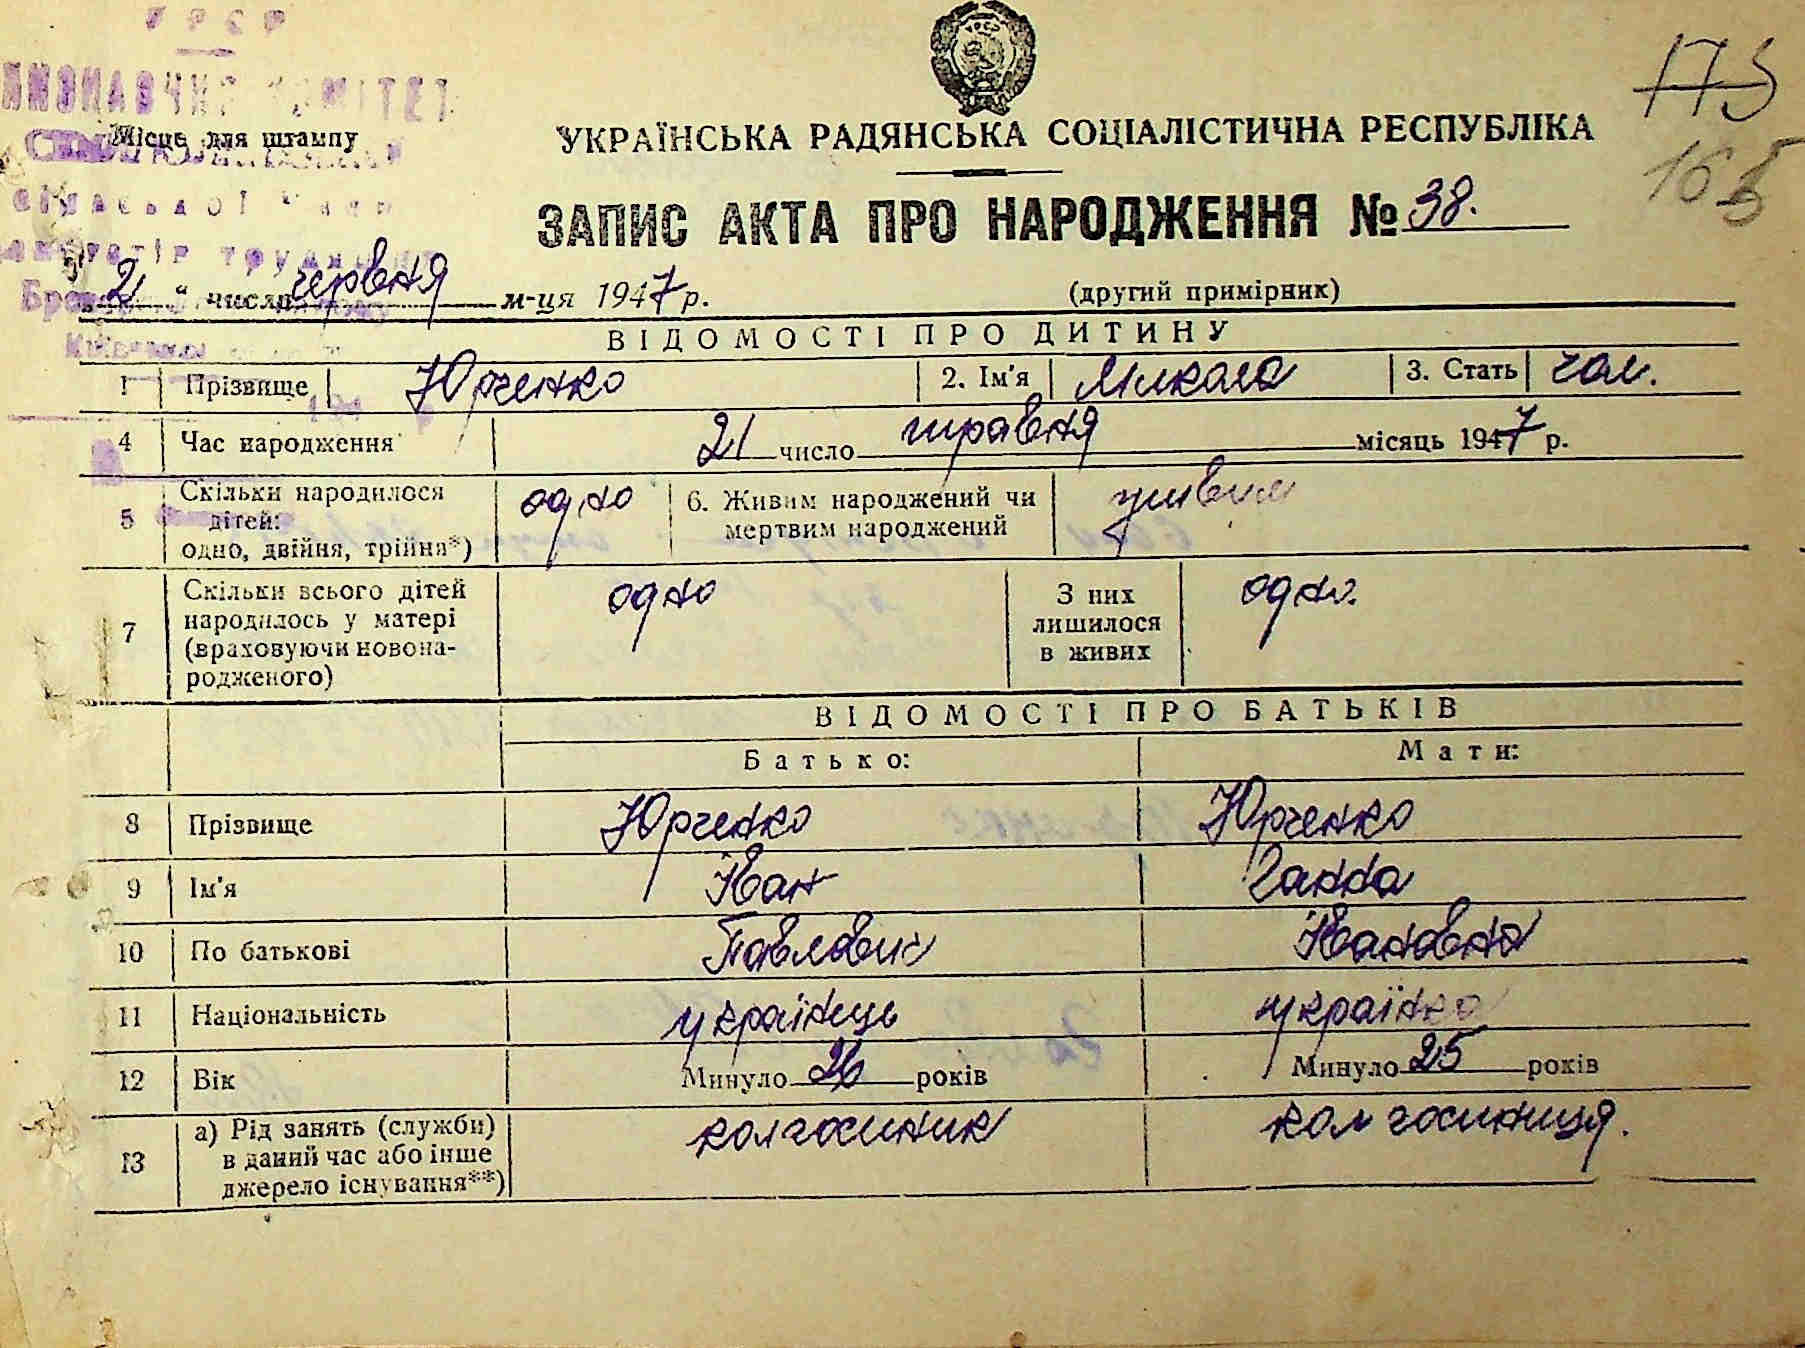 УРСР
ВИКОНАВЧИЙ КОМІТЕТ
Місце для штампу
сільської Ради
депутатів трудящих
УКРАЇНСЬКА РАДЯНСЬКА СОЦІАЛІСТИЧНА РЕСПУБЛІКА
175
165
ЗАПИС АКТА ПРО НАРОДЖЕННЯ № 38.
„2“ числа червня м-ця 1947 р.
(другий примірник)
ВІДОМОСТІ ПРО ДИТИНУ
1 Прізвище Юрченко 2. Ім'я Микола 3. Стать чол.
4 Час народження 21 число травня місяць 1947 р.
5 Скільки народилося дітей: одно, двійня, трійня*) одно 6. Живим народжений чи мертвим народжений живим
7 Скільки всього дітей народилось у матері (враховуючи новонародженого) одно З них лишилося в живих одно.
ВІДОМОСТІ ПРО БАТЬКІВ
Батько: Мати:
8 Прізвище Юрченко Юрченко
9 Ім'я Іван Ганна
10 По батькові Павлович Івановна
11 Національність українець українка
12 Вік Минуло 26 років Минуло 25 років
13 а) Рід занять (служби) в даний час або інше джерело існування**) колгоспник колгоспниця.